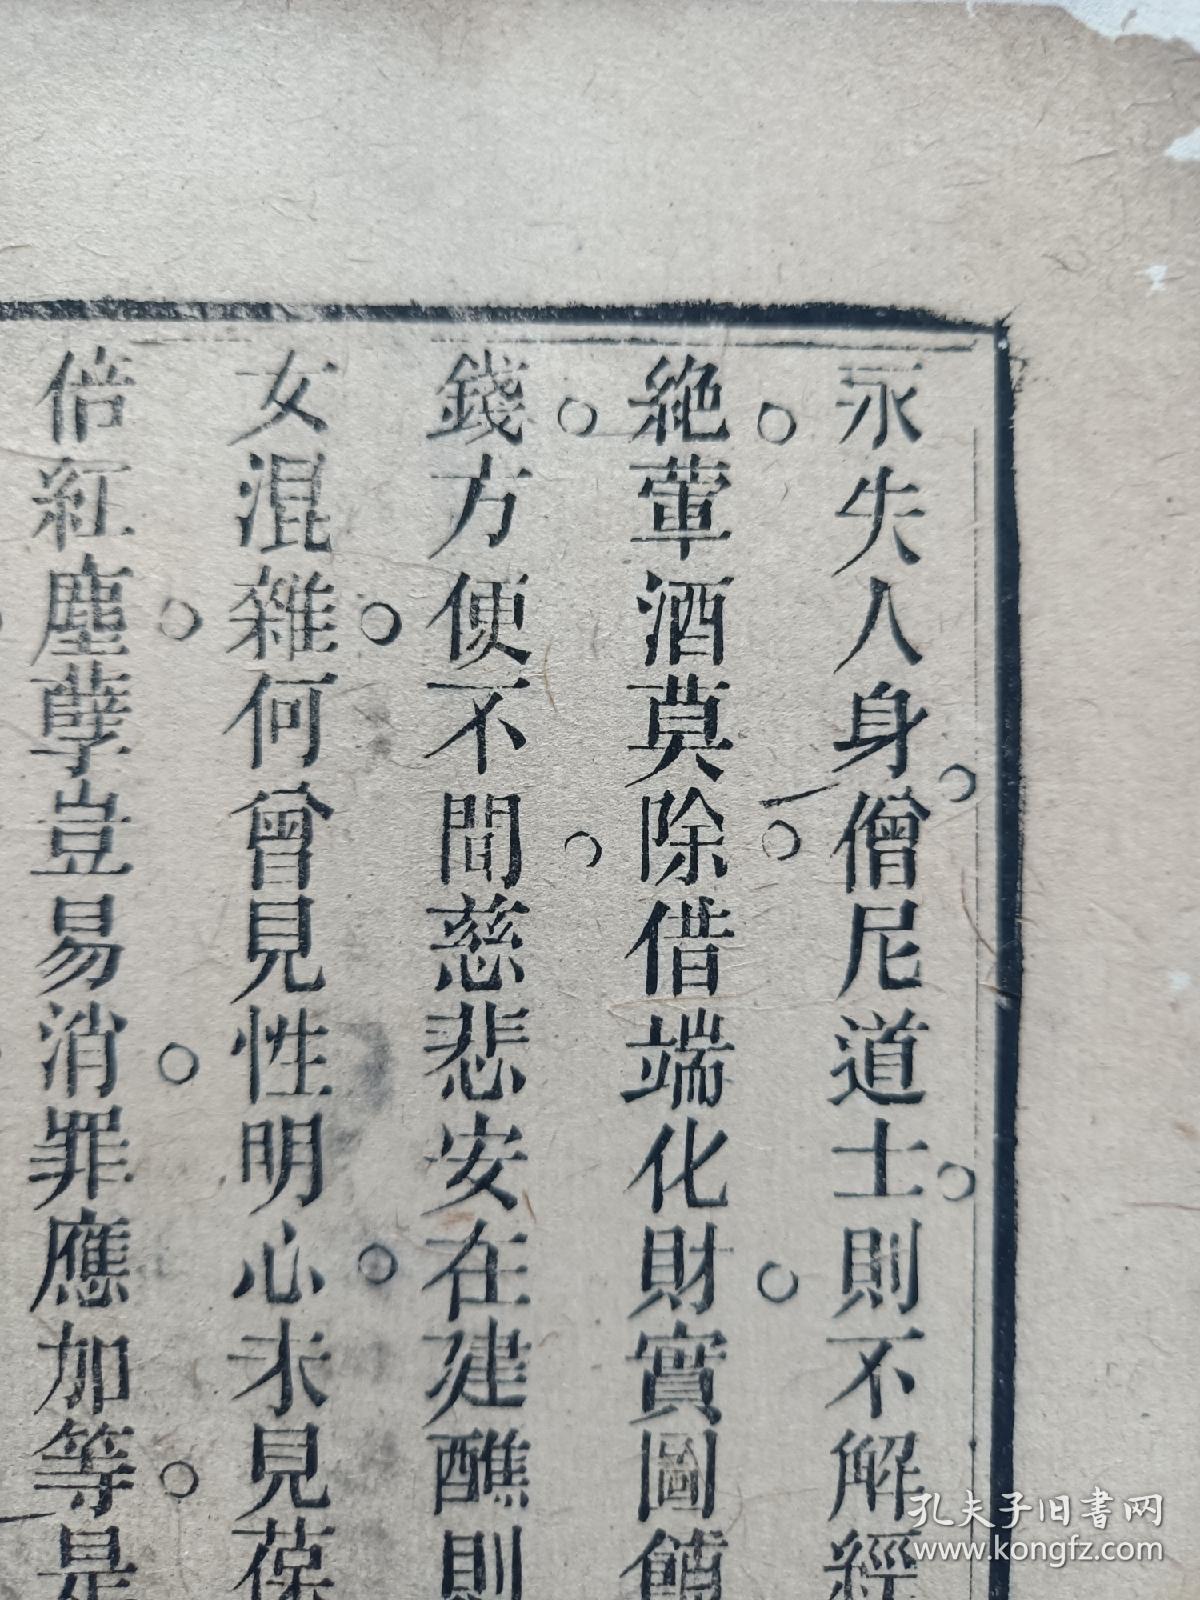 永失人身。僧尼道士。則不解經
絶葷酒。莫除借端化財。實圖餔
錢。方便不聞。慈悲安在。建醮則
女混雜。何曾見性明心。未見葆
倍紅塵。孽豈易消。罪應加等。是
孔夫子旧書网
www.kongfz.com